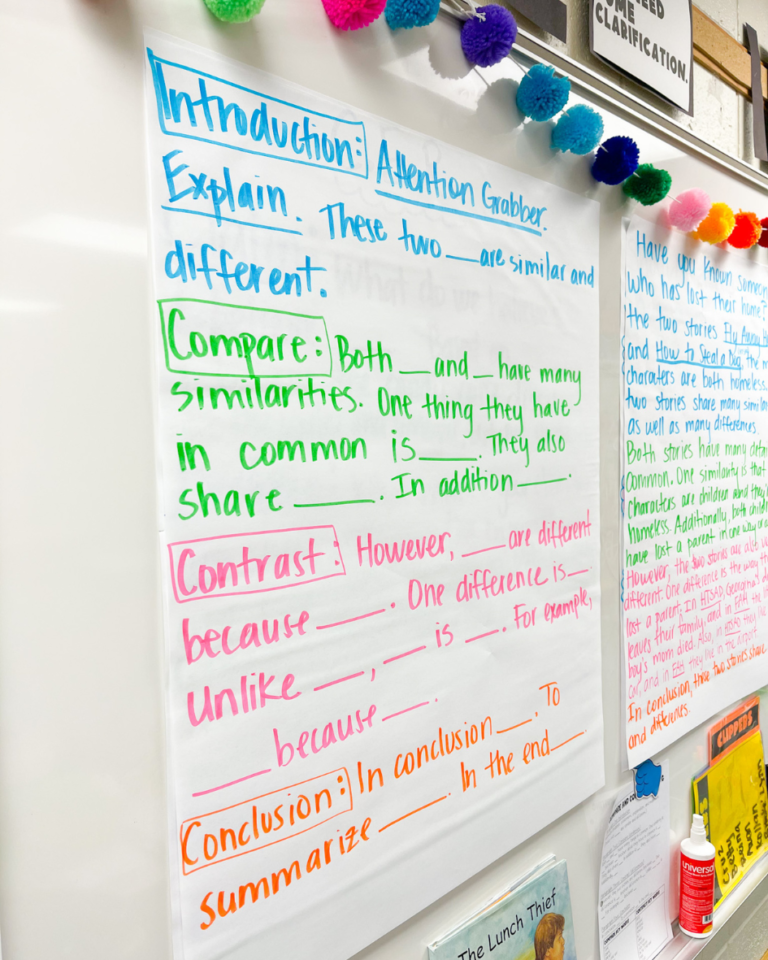 NEED
SOME
CLARIFICATION.
Introduction: Attention Grabber.
Explain. These two ___ are similar and
different.
Compare: Both ___ and ___ have many
similarities. One thing they have
in common is ___. They also
share ___. In addition ___.
Contrast: However, ___ are different
because ___. One difference is ___
Unlike ___, ___ is ___. For example,
___ because ___.
Conclusion: In conclusion ___. To
summarize ___. In the end ___.
Have you known
who has lost their home?
the two stories Fly Away
and How to Steal a Dog, the
charaters are both homeless.
two stories share many
as well as many differences.
Both stories have many
common. One similarity is that
characters are children and
homeless. Additionally, both
have lost a parent in one way or
However, the two stories are also
different. One difference is the way
lost a parent. In HTSAD, Georgina's
leaves their family, and in FAH the
boy's mom died. Also, in HTSAD they
car, and in FAH they live in the airport.
In conclusion, these two stories share
and differences.
CLIPPERS
universal
The Lunch Thief